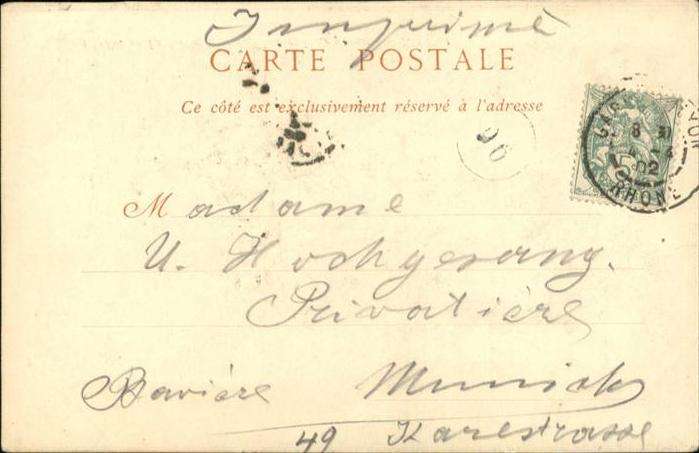 Imprimé
CARTE POSTALE
Ce côté est exclusivement réservé à l'adresse
96
8
02
RHONE
Madame
U. Hochgesang.
Privatière
Bavière Munich
49 Karlstrasse